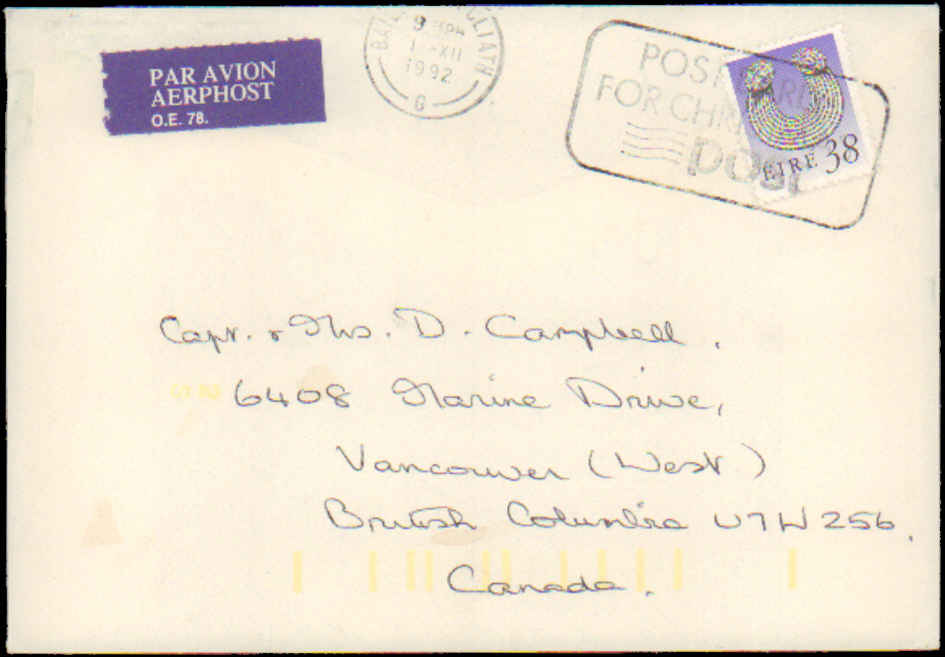 PAR AVION
AERPHOST
O.E. 78.
1 -XII
1992
G
POST EARLY
FOR CHR
POST
ÉIRE 38
Capt. & Mrs. D. Campbell.
6408 Marine Drive,
Vancouver (West)
British Columbia V7W 2S6.
Canada.